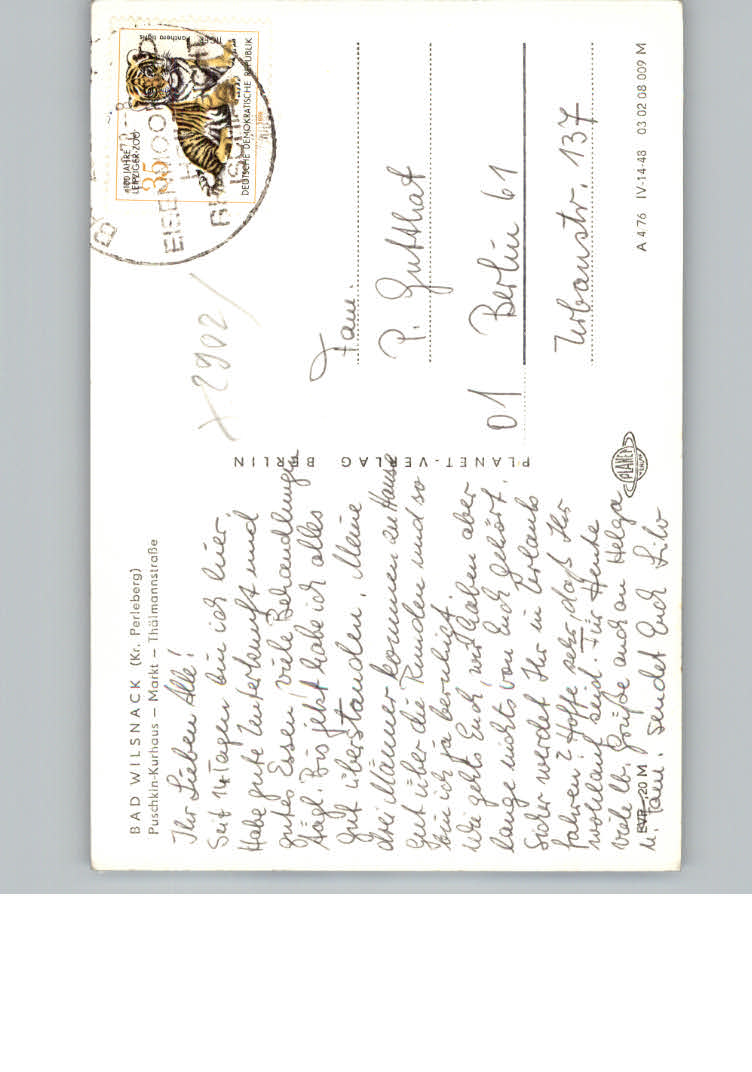 BAD WILSNACK (Kr. Perleberg)
Puschkin-Kurhaus – Markt – Thälmannstraße
Ihr Lieben Alle!
Seit 14 Tagen bin ich hier,
Habe gute Unterkunft und
gutes Essen. Viele Behandlungen
tägl. Bis jetzt habe ich alles
gut überstanden. Meine
drei Männer kommen zu Hause
gut über die Runden und so
bin ich ja beruhigt.
Wie gehts Euch, wir haben aber
lange nichts von Euch gehört.
Sicher werdet Ihr in Urlaub
fahren? Hoffe sehr, daß Ihr
wohlauf seid. Für Heute
viele lb. Grüße auch an Helga
u. Fam. sendet Euch Lilo
EVP -,20 M
PLANET-VERLAG BERLIN
PLANET
VERLAG
x 2902/
100 JAHRE
LEIPZIGER ZOO
35
TIGER
Panthera tigris
DEUTSCHE DEMOKRATISCHE REPUBLIK
1978
Fam.
P. Gutthat
01 Berlin 61
Urbanstr. 137
A 4 76 IV-14-48 03 02 08 009 M